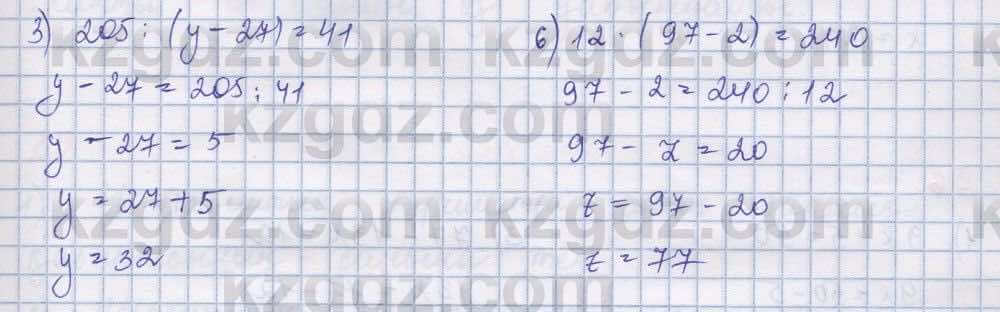 3) 205 : (y - 27) = 41
y - 27 = 205 : 41
y - 27 = 5
y = 27 + 5
y = 32
6) 12 · (97 - z) = 240
97 - z = 240 : 12
97 - z = 20
z = 97 - 20
z = 77
kzgdz.com
kzgdz.com
kzgdz.com
kzgdz.com
kzgdz.com